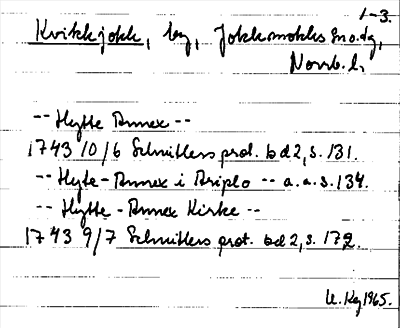 1-3.
Kvikkjokk, by, Jokkmokks sn o. dg,
Norrb. l.
-- Hytte Annex --
1743 10/6 Schnitlers prot. bd 2, s. 131.
-- Hyte-Annex i Ariplo -- a.a.s. 134.
-- Hytte-Annex Kirke --
1743 9/7 Schnitlers prot. bd 2, s. 172.
1965.